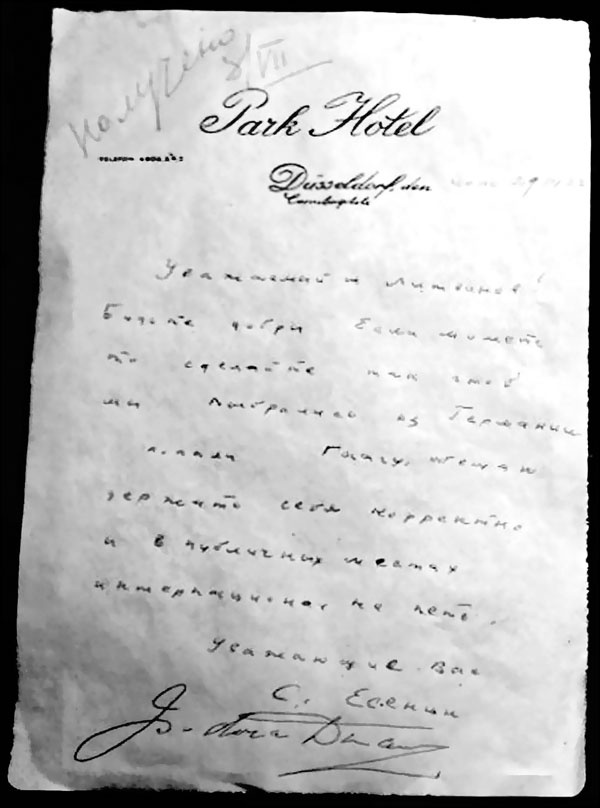 получено
8/VII
Park Hotel
Düsseldorf, den
Corneliusplatz
Уважаемый т Литвинов!
Будьте добры Если можете
то сделайте так чтоб
мы выбрались из Германии
и попали Гаагу, обещаю
держать себя корректно
и в публичных местах
интернационал не петь.
Уважающие Вас
С. Есенин
Isadora Duncan